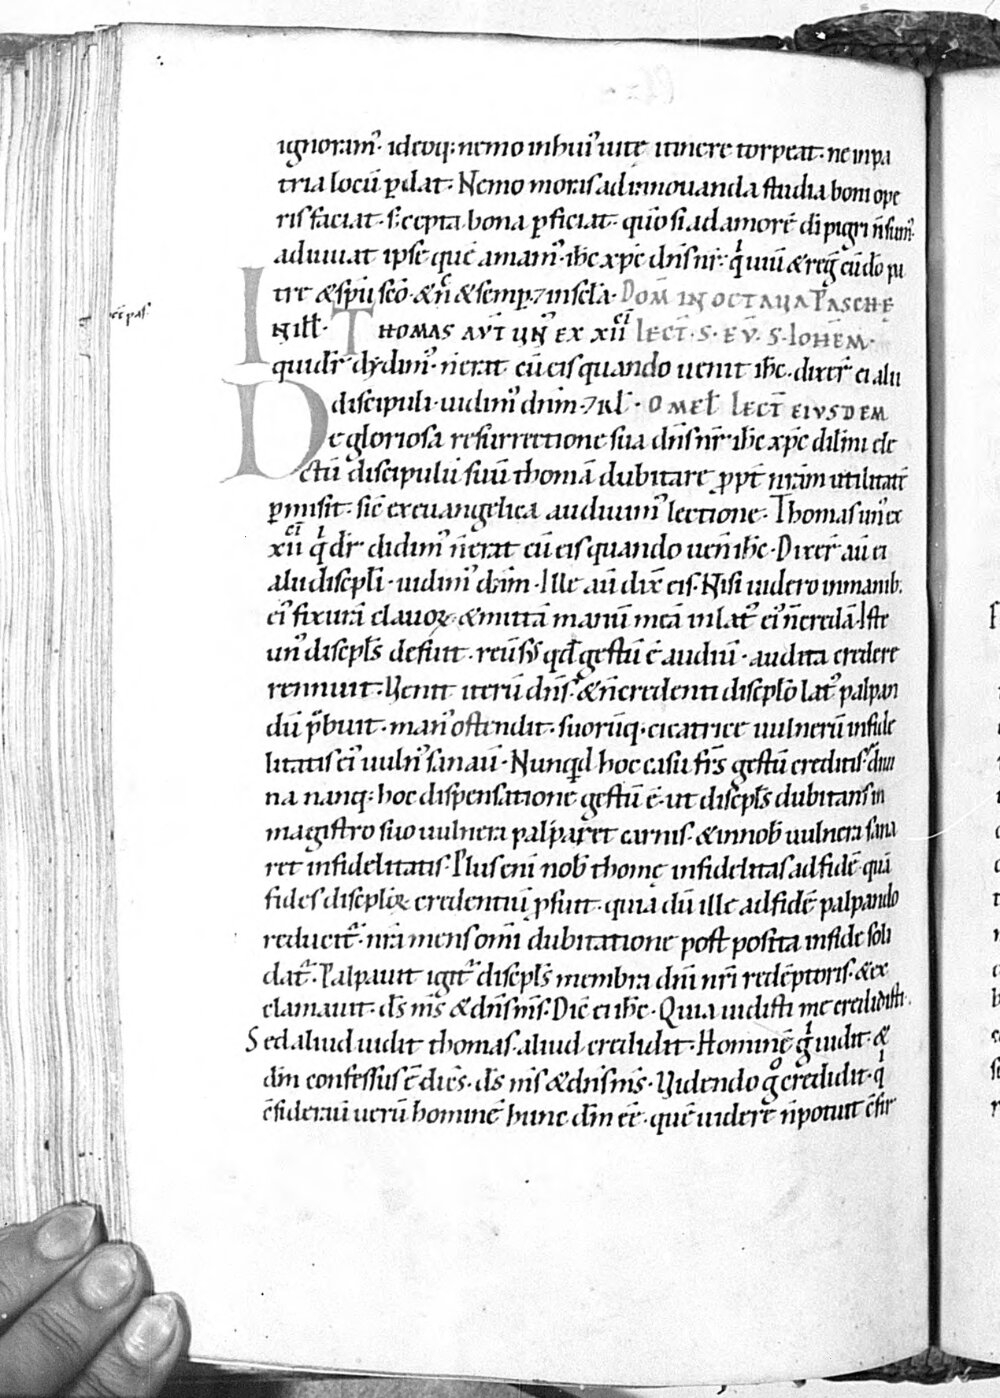 ignoram᷒· ideoq; nemo in hui᷒ uitę itinere torpeat· ne in pa
tria locū ꝑdat· Nemo moris ad innouanda studia boni ope
ris faciat· s; cepta bona ꝑficiat· quō si ad amorē di pigri n̄ sum᷒·
adiuuat ipse quē amam᷒ ih̄c xp̄c dn̄s nr̄· q' uiuit & reḡ cū dō pa
tre & sp̄u scō· & n̄c & semp· 7 in scl̄a· DOM̄ IN OCTAVA PASCHĘ
IN ill̄· THOMAS AVT̄ UN᷒ EX XII LECT̄· S· EV̄· S· IOHEM·
qui dr̄ dydim᷒· n̄ erat cū eis quando uenit ih̄c· dixer̄ ei alii
discipuli· uidim᷒ dn̄m· 7 RL̄· OMEL̄ LECT̄ EIVSDEM
De gloriosa resurrectione sua dn̄s nr̄ ih̄c xp̄c dil̄mi ele
ctū discipulū suū thomā dubitare ꝓpt̄ nr̄am utilitatē
ꝑmisit· sic̄ ex euangelica audiuim᷒ lectione· Thomas un᷒ ex
xii q' dr̄ didim᷒ n̄ erat cū eis quando uen̄ ih̄c· Dixer̄ au̅ ei
alii discpl̄i· uidim᷒ dn̄m· Ille au̅ dix̄ eis· Nisi uidero in manib;
ei᷒ fixurā clauoꝝ· & mittā manū meā in lat᷒ ei᷒ n̄ credā· Iste
un᷒ discpl̄s defuit· reūsus qd̄ gestū ē audiuit· audita credere
rennuit· Uenit iterū dn̄s· & n̄ credenti discpl̄o lat᷒ palpan
dū p̄buit· man᷒ ostendit· suorūq; cicatrice uulnerū infide
litatis ei᷒ uuln᷒ sanauit· Nunqd̄ hoc casu fr̄s gestū creditis· diui
na nanq; hoc dispensatione gestū ē· ut discpl̄s dubitans in
magistro suo uulnera palparet carnis· & in nob̄ uulnera sana
ret infidelitatis· Plus enī nob̄ thomę infidelitas ad fidē quā
fides discpl̄oꝝ credentiū ꝓfuit· quia dū ille ad fidē palpando
reducit᷑· nr̄a mens omī dubitatione post posita in fide soli
dat᷑· Palpauit igit᷑ discpl̄s membra dn̄i nr̄i redēptoris· & ex
clamauit· dš mš & dn̄s mš· Dic̄ ei ih̄c· Quia uidisti me credidisti·
Sed aliud uidit thomas· aliud credidit· Hominē g' uidit· &
dm̄ confessus ē dicēs· dš mš & dn̄s mš· Uidendo g° credidit· q'
c̄siderauit uerū hominē hunc dm̄ ēē· quē uidere n̄ potuit c̄fir